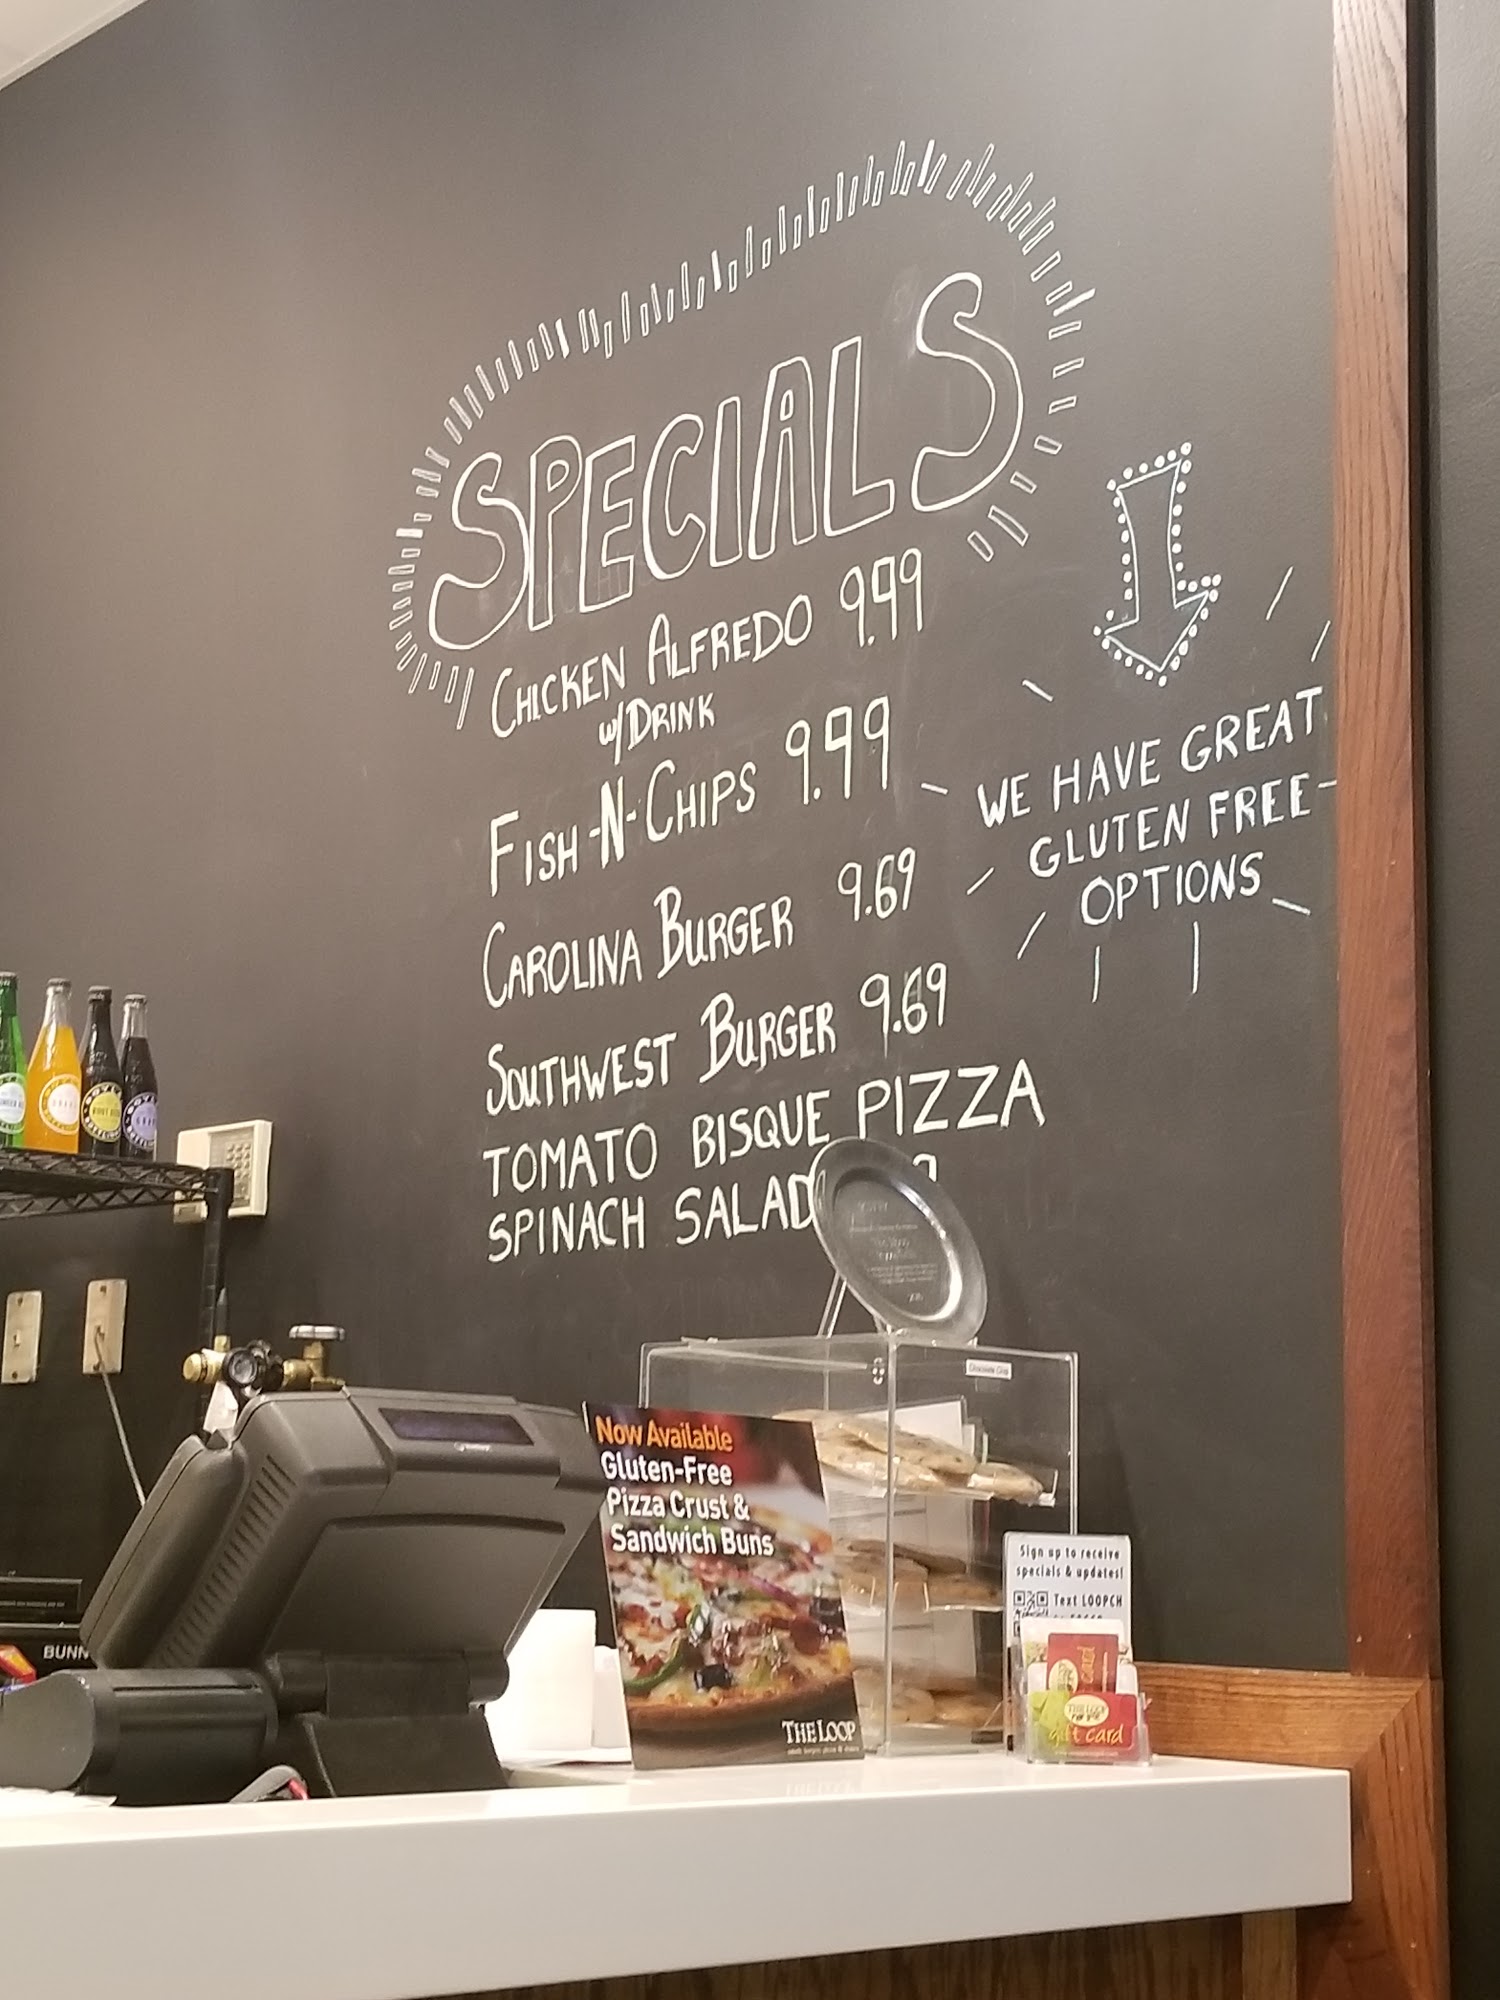 SPECIALS
CHICKEN ALFREDO 9.99
W/DRINK
FISH-N-CHIPS 9.99
CAROLINA BURGER 9.69
SOUTHWEST BURGER 9.69
TOMATO BISQUE PIZZA
SPINACH SALAD
WE HAVE GREAT
GLUTEN FREE
OPTIONS
ROOT BEER
Chocolate Chip
BUNN
Now Available
Gluten-Free
Pizza Crust &
Sandwich Buns
THE LOOP
Sign up to receive
specials & updates!
Text LOOPCH
card
THE LOOP
gift card